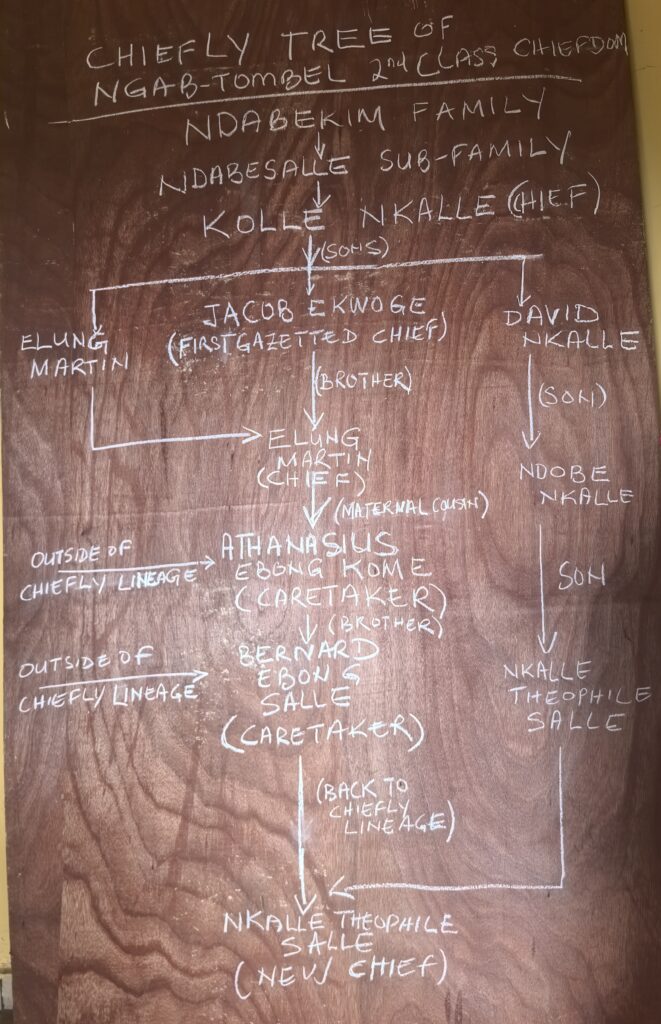 CHIEFLY TREE OF
NGAB-TOMBEL 2nd CLASS CHIEFDOM
NDABEKIM FAMILY
NDABESALLE SUB-FAMILY
KOLLE NKALLE (CHIEF)
(SONS)
ELUNG
MARTIN
JACOB EKWOGE
(FIRST GAZETTED CHIEF)
DAVID
NKALLE
(BROTHER)
(SON)
ELUNG
MARTIN
(CHIEF)
NDOBE
NKALLE
(MATERNAL COUSIN)
OUTSIDE OF
CHIEFLY LINEAGE
ATHANASIUS
EBONG KOME
(CARETAKER)
SON
(BROTHER)
OUTSIDE OF
CHIEFLY LINEAGE
BERNARD
EBONG
SALLE
(CARETAKER)
NKALLE
THEOPHILE
SALLE
(BACK TO
CHIEFLY
LINEAGE)
NKALLE THEOPHILE
SALLE
(NEW CHIEF)